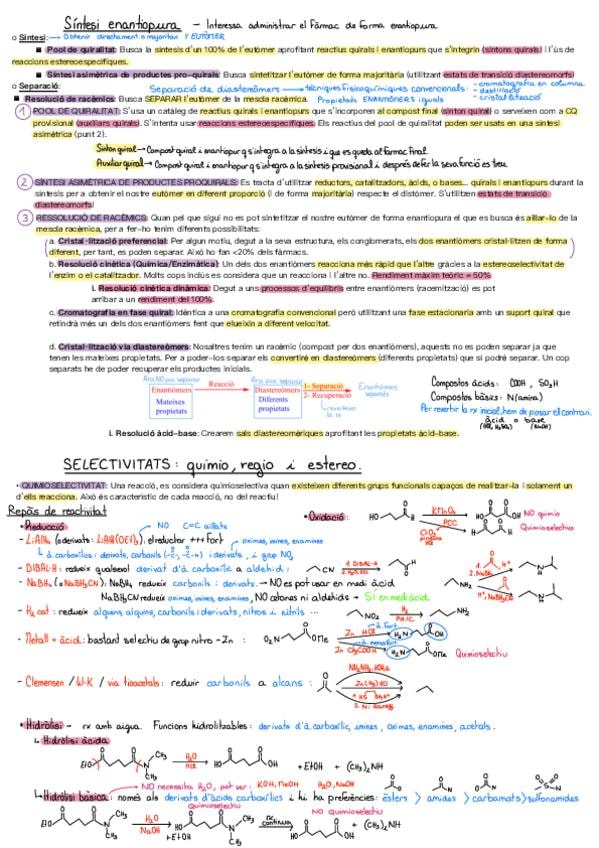 Síntesi enantiopura - Interessa administrar el Fàrmac de forma enantiopura
o Síntesi: → Obtenir directament o majoritari l'EUTÒMER
■ Pool de quiralitat: Busca la síntesis d'un 100% de l'eutòmer aprofitant reactius quirals i enantiopurs que s'integrin (sintons quirals) i l'ús de
reaccions estereoespecífiques.
■ Síntesi asimètrica de productes pro-quirals: Busca sintetitzar l'eutòmer de forma majoritària (utilitzant estats de transició diastereomorfs)
o Separació: Separació de diastereòmers → tècniques fisicoquímiques convencionals: - cromatografia en columna
- destil·lació
- cristal·lització
■ Resolució de racèmics: Busca SEPARAR l'eutòmer de la mescla racèmica. Propietats ENANTIÒMERS iguals
1 POOL DE QUIRALITAT: S'usa un catàleg de reactius quirals i enantiopurs que s'incorporen al compost final (sintón quiral) o serveixen com a CQ
provisional (auxiliars quirals). S'intenta usar reaccions estereoespecífiques. Els reactius del pool de quiralitat poden ser usats en una síntesi
asimètrica (punt 2).
Sinton quiral → Compost quiral i enantiopur q s'integra a la síntesis i que es queda al fàrmac final
Auxiliar quiral → Compost quiral i enantiopur q s'integra a la síntesis provisional i després de fer la seva funció es treu
2 SÍNTESI ASIMÈTRICA DE PRODUCTES PROQUIRALS: Es tracta d'utilitzar reductors, catalitzadors, àcids, o bases... quirals i enantiopurs durant la
síntesis per a obtenir el nostre eutòmer en diferent proporció (i de forma majoritària) respecte el distòmer. S'utilitzen estats de transició
diastereomorfs!
3 RESSOLUCIÓ DE RACÈMICS: Quan pel que sigui no es pot sintetitzar el nostre eutòmer de forma enantiopura el que es busca és aïllar-lo de la
mescla racèmica, per a fer-ho tenim diferents possibilitats:
a. Cristal·lització preferencial: Per algun motiu, degut a la seva estructura, els conglomerats, els dos enantiòmers cristal·litzen de forma
diferent, per tant, es poden separar. Això ho fan <20% dels fàrmacs.
b. Resolució cinètica (Química/Enzimàtica): Un dels dos enantiòmers reacciona més ràpid que l'altre gràcies a la estereoselectivitat de
l'enzim o el catalitzador. Molts cops inclús es considera que un reacciona i l'altre no. Rendiment màxim teòric = 50%
i. Resolució cinètica dinàmica: Degut a uns processos d'equilibris entre enantiòmers (racemització) es pot
arribar a un rendiment del 100%.
c. Cromatografia en fase quiral: Idèntica a una cromatografia convencional però utilitzant una fase estacionaria amb un suport quiral que
retindrà més un dels dos enantiòmers fent que elueixin a diferent velocitat.
d. Cristal·lització via diastereòmers: Nosaltres tenim un racèmic (compost per dos enantiòmers), aquests no es poden separar ja que
tenen les mateixes propietats. Per a poder-los separar els convertiré en diastereòmers (diferents propietats) que si podré separar. Un cop
separats he de poder recuperar els productes inicials.
Ara NO puc separar
Enantiòmers
Mateixes
propietats
Reacció
Ara puc separar
Diastereòmers
Diferents
propietats
1- Separació
2- Recuperació
Enantiòmers
separats
Compostos àcids: COOH, SO₃H
Compostos bàsics: N (amina)
Per revertir la rx inicial, hem de posar el contrari.
àcid o base
(HCl, H₂SO₄) (NaOH)
i. Resolució àcid-base: Crearem sals diastereomèriques aprofitant les propietats àcid-base.
SELECTIVITATS: quimio, regio i estereo.
· QUIMIOSELECTIVITAT: Una reacció, es considera quimioselectiva quan existeixen diferents grups funcionals capaços de realitzar-la i solament un
d'ells reacciona. Això és característic de cada reacció, no del reactiu!
Repàs de reactivitat
• Reducció NO C=C aïllats
- LiAlH₄ (o derivats: LiAlH(OEt)₃), el reductor +++ fort
oximes, imines, enamines
- DIBAL-H: redueix qualsevol derivat d'à. carboxílic a aldehid:
- NaBH₄ (o NaBH₃CN): NaBH₄ redueix carbonils i derivats. → NO es pot usar en medi àcid
NaBH₃CN redueix oximes, imines, enamines, NO cetones ni aldehids → Sí en medi àcid
- H₂ cat: redueix alquens, alquins, carbonils i derivats, nitros i nitrils ...
- Metall + àcid: bastant selectiu de grup nitro - Zn:
- Clemensen / W-K / via tioacetals: reduir carbonils a alcans:
• Oxidació:
KMnO₄
NO quimio
PCC
Quimioselectiu
CN
1. DIBAL-H
2. H₂O, HCl
NO₂
H₂
Pd/C
NH₂
O₂N
OMe
Zn HCl
H₂N
OH
Zn CH₃COOH
OMe
Quimioselectiu
Zn(Hg) HCl
• Hidròlisi - rx amb aigua. Funcions hidrolitzables: derivats d'à. carboxílic, imines, oximes, enamines, acetals.
↳ Hidròlisi àcida
EtO
H₂O
HCl
HO
OH
+ EtOH + (CH₃)₂NH
NO necesita H₂O, pot ser: KOH, NaOH H₂O, NaOH
↳ Hidròlisi bàsica: només als derivats d'àcids carboxílics i hi ha preferències: èsters > amides > carbamats > sulfonamides
Quimioselectiu
NO Quimioselectiu
EtO
H₂O
NaOH
+ EtOH
HO
rx
continua
HO
OH
+ (CH₃)₂NH